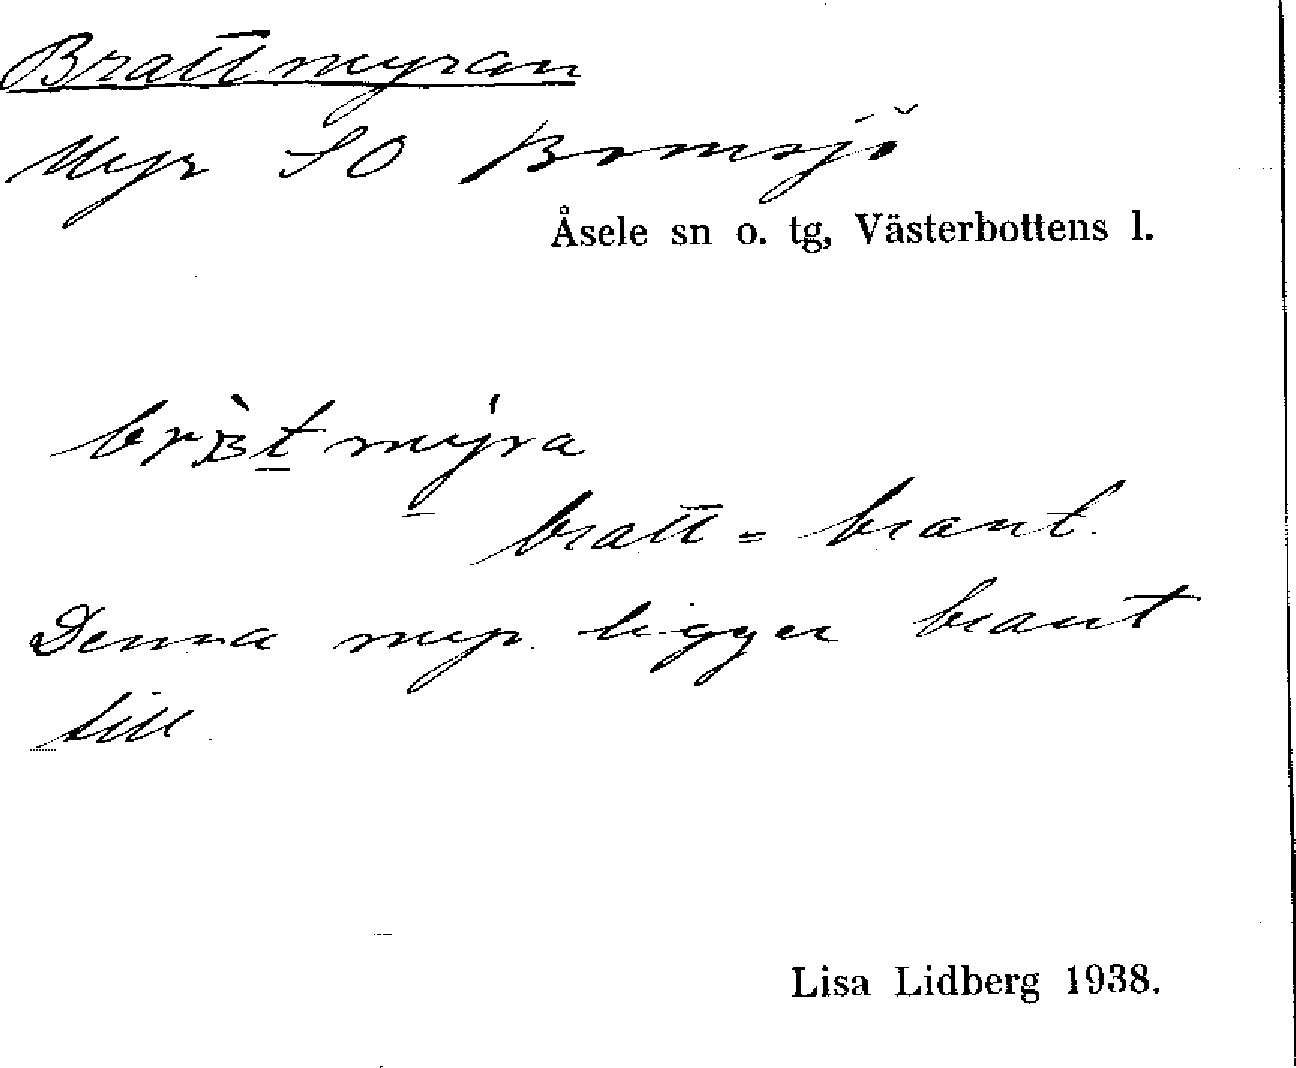 Brattmyran
Myr SO Bomsjö
Åsele sn o. tg, Västerbottens l.
bratt = brant.
Denna myr ligger brant
till.
Lisa Lidberg 1938.